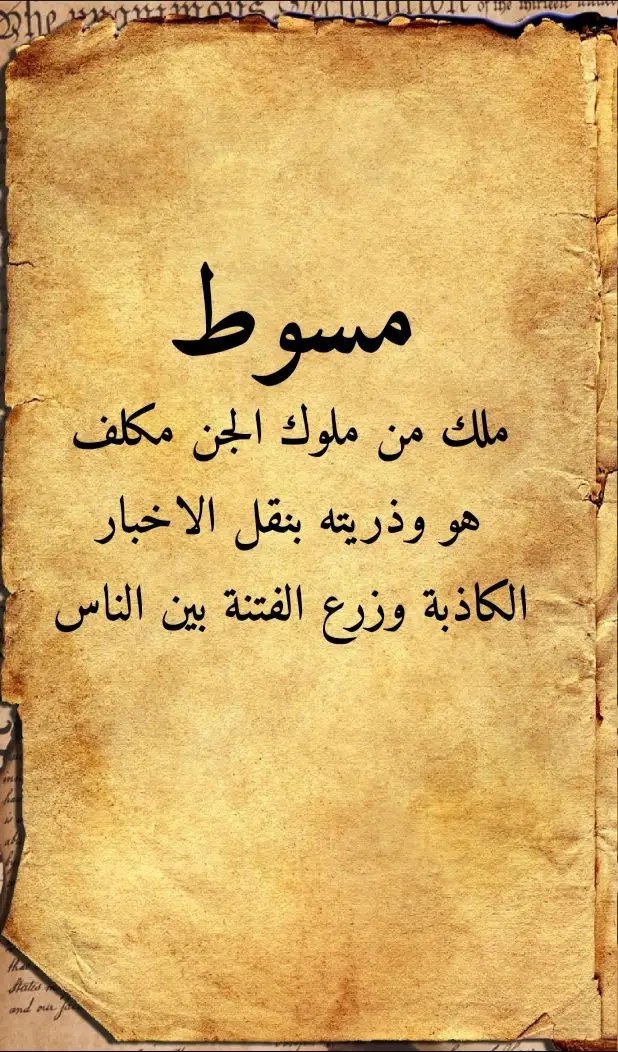 The unanimous Declaration of the thirteen united
مسوط
ملك من ملوك الجن مكلف
هو وذريته بنقل الاخبار
الكاذبة وزرع الفتنة بين الناس
that
States
and our